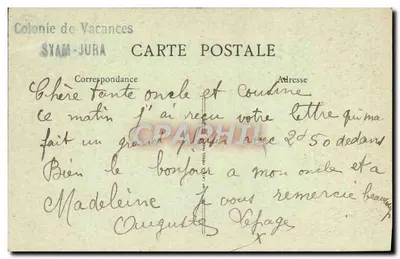 Colonie de Vacances
SYAM-JURA
CARTE POSTALE
Correspondance
Adresse
Chère tante oncle et cousine
ce matin j'ai reçu votre lettre qui ma
fait un grand plaisir avec 2d 50 dedans
Bien le bonjour a mon oncle et a
Madeleine je vous remercie beaucoup
Auguste Lepage
CPARHTI